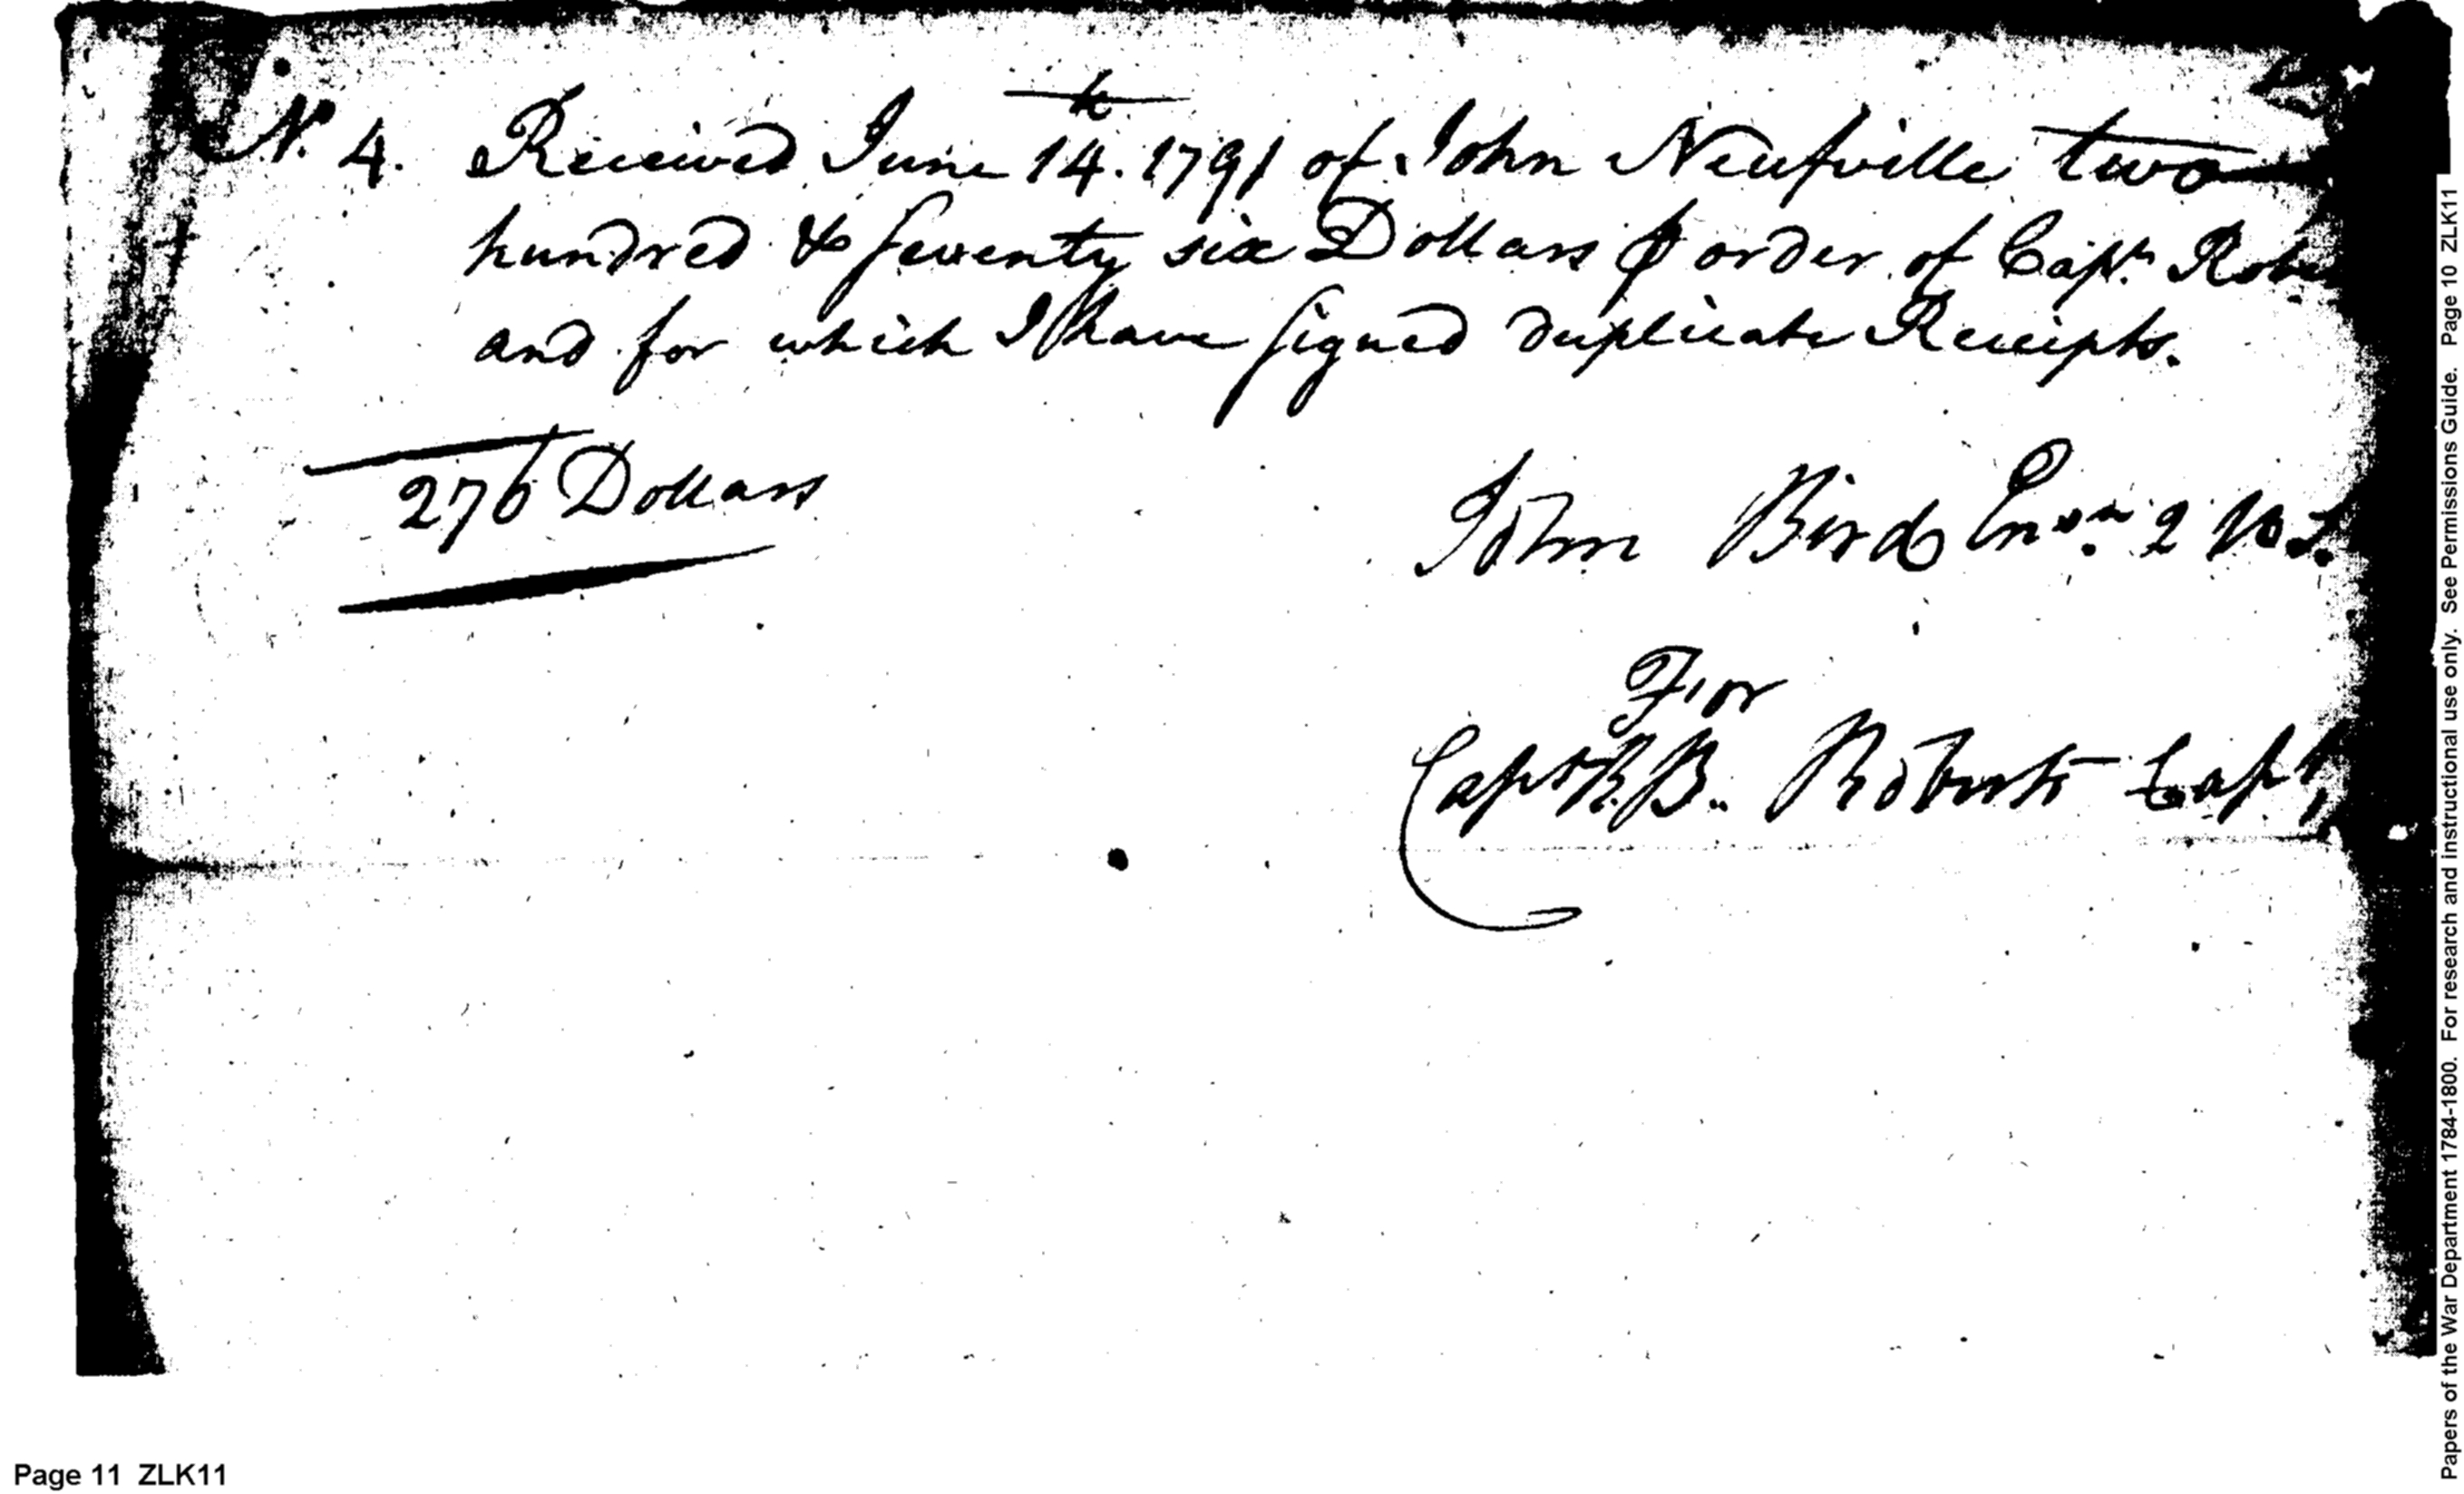 N. 4. Received June 14.th 1791 of John Neufville two
hundred & seventy six Dollars ⅌ order of Capt.
and for which I have signed duplicate Receipts.
276 Dollars
John Bird Ensn. 2
For
Capt R. B. Roberts Capt.
Page 11 ZLK11
Papers of the War Department 1784-1800. For research and instructional use only. See Permissions Guide. Page 10 ZLK11